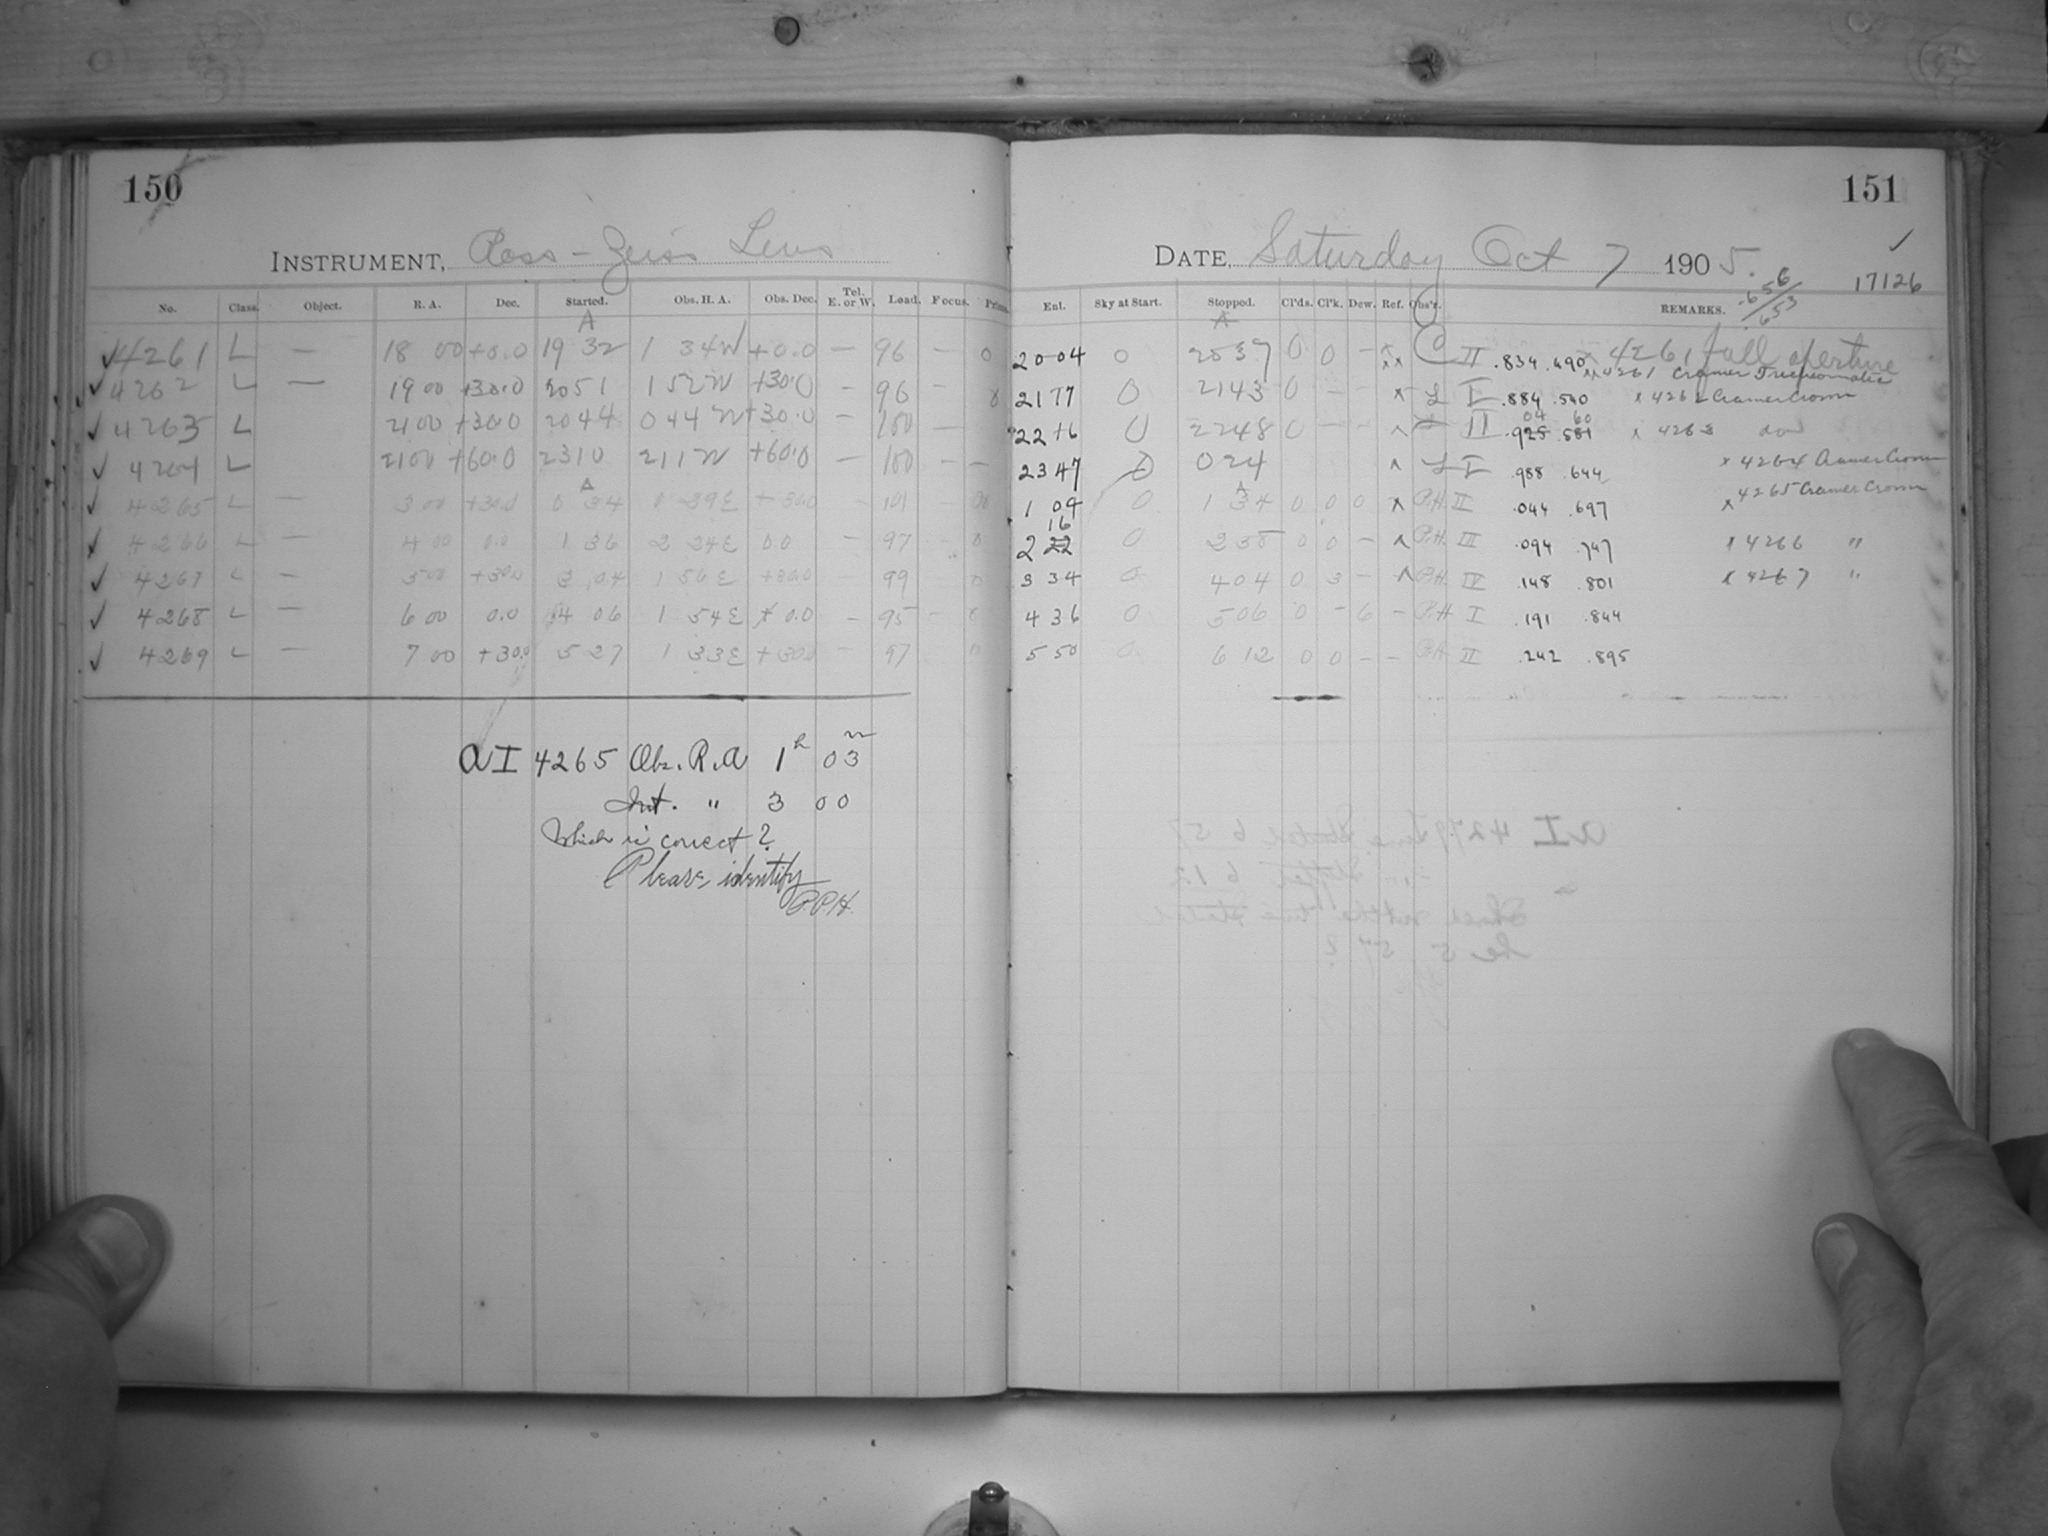 150
INSTRUMENT, Ross-Zeiss Lens
No. Class. Object. R. A. Dec. Started. Obs. H. A. Obs. Dec. Tel. E. or W. Load. Focus. Prism.
A
✓ 4261 L — 18 00 +0.0 19 32 1 34W +0.0 — 96 — 0
✓ 4262 L — 19 00 +30.0 2051 1 52W +30.0 — 96 —
✓ 4263 L 2100 +30.0 2044 0 44W +30.0 — 100 —
✓ 4264 L 2100 +60.0 2310 2 11W +60.0 — 100 — —
A
✓ 4265 L — 3 00 +30.0 0 34 +30.0 — 101 —
4266 L — 4 00 0.0 1 36 2 24E 0.0 — 97 — 0
✓ 4267 L — 5 00 +30.0 3 04 1 56E +30.0 — 99 0
✓ 4268 L — 6 00 0.0 4 06 1 54E +0.0 — 95 —
✓ 4269 L — 7 00 +30.0 5 27 1 33E +30.0 — 97
AI 4265 Obs. R.A 1h 03m
Int. " 3 00
Which is correct?
Please identify
P.P.H.
151
DATE, Saturday Oct 7 1905.
✓
17126
.656/.653
Enl. Sky at Start. Stopped. Cl'ds. Cl'k. Dew. Ref. Obs'r. REMARKS.
A
20 04 0 2037 0 0 — xx C II .834 .490 x 4261 full aperture
xx 4261 Cramer Trichromatic
2177 0 2143 0 — — x L I .884 .540 x 4262 Cramer Crown
04 60
22 16 0 2248 0 — — II .925 .581 x 4263 do
23 47 0 0 24 L I .988 .644 x 4264 Cramer Crown
A
1 04 0 1 34 0 0 0 x P.H. II .044 .697 x 4265 Cramer Crown
16
2 22 0 2 38 0 0 — P.H. III .094 .747 x 4266 "
3 34 0 4 04 0 3 — P.H. IV .148 .801 x 4267 "
4 36 0 5 06 0 — 6 — P.H I .191 .844
5 50 0 6 12 0 0 — — P.H II .242 .895